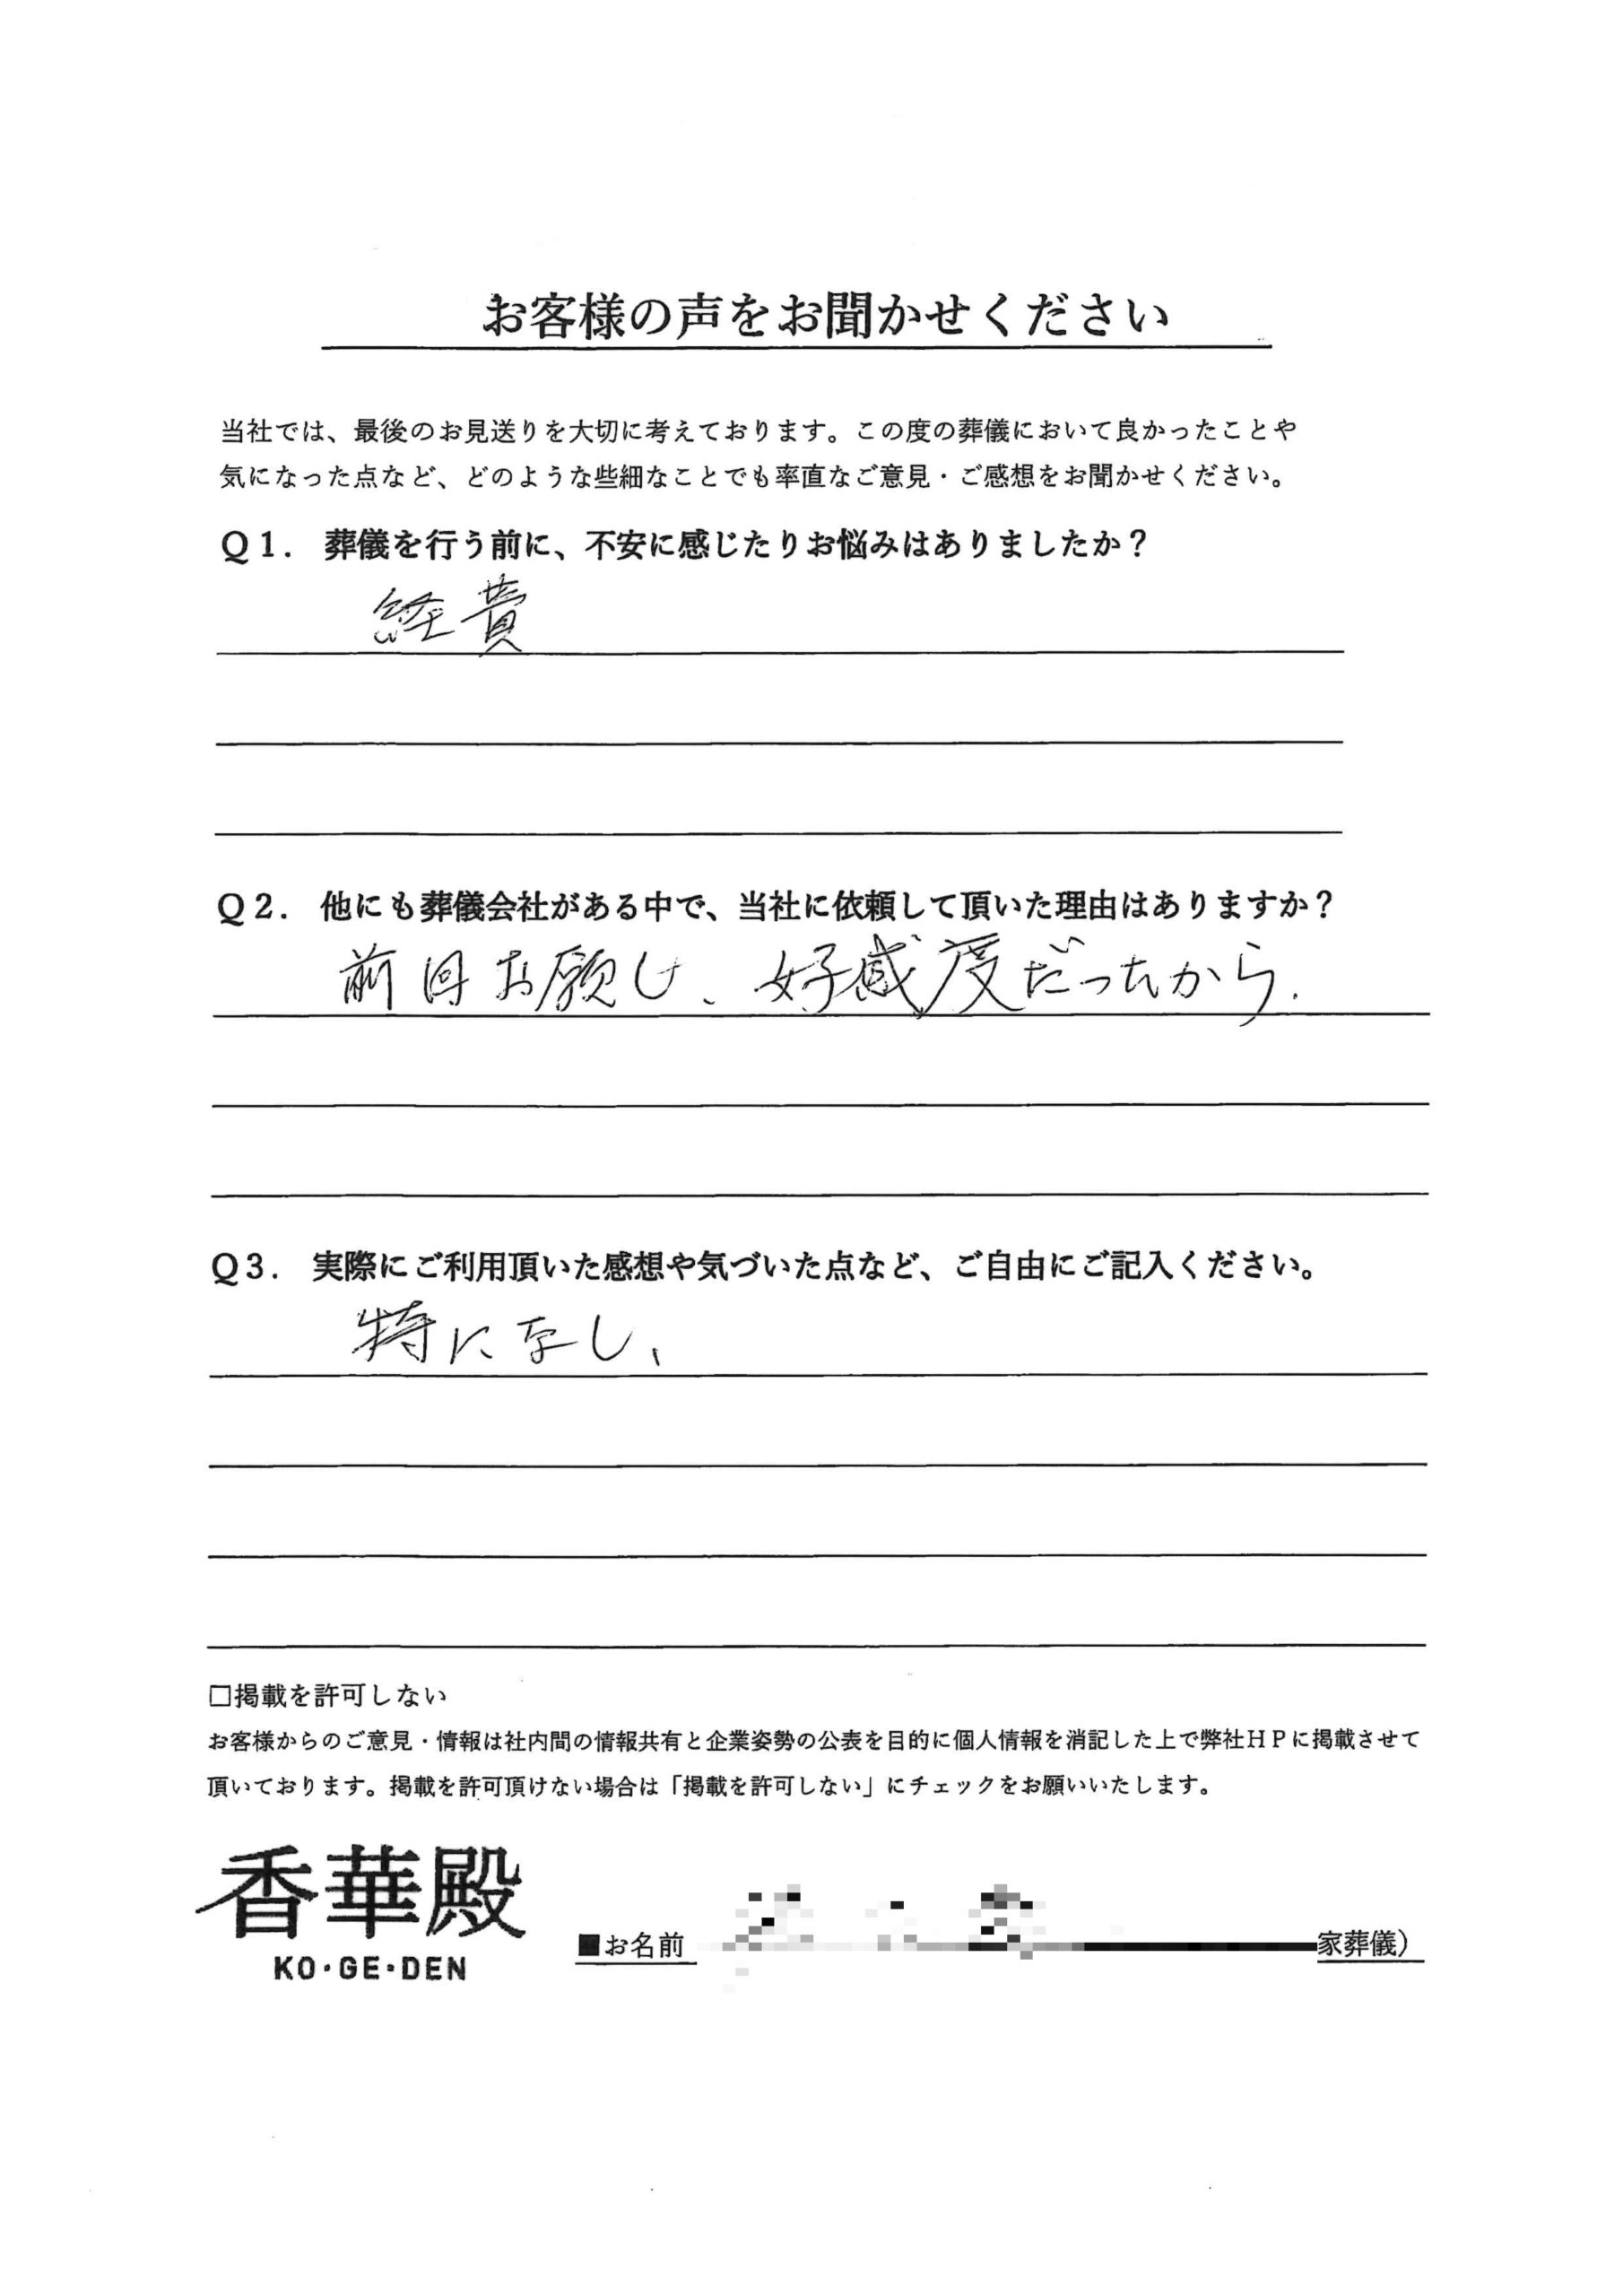 お客様の声をお聞かせください
当社では、最後のお見送りを大切に考えております。この度の葬儀において良かったことや
気になった点など、どのような些細なことでも率直なご意見・ご感想をお聞かせください。
Q1. 葬儀を行う前に、不安に感じたりお悩みはありましたか？
経費
Q2. 他にも葬儀会社がある中で、当社に依頼して頂いた理由はありますか？
前回お願いし、好感度だったから.
Q3. 実際にご利用頂いた感想や気づいた点など、ご自由にご記入ください。
特になし、
□掲載を許可しない
お客様からのご意見・情報は社内間の情報共有と企業姿勢の公表を目的に個人情報を消記した上で弊社HPに掲載させて
頂いております。掲載を許可頂けない場合は「掲載を許可しない」にチェックをお願いいたします。
香華殿
KO・GE・DEN
■お名前 家葬儀）